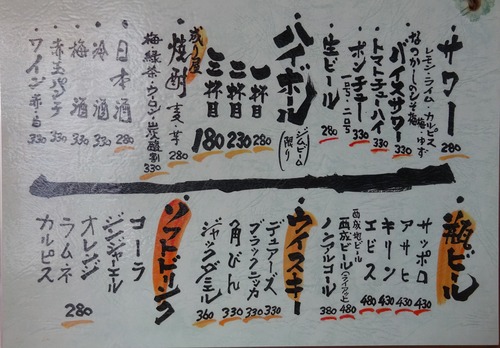 サワー 280
レモン・ライム・カルピス
梅・ゆず
なつかしのしそ梅
バイスサワー 330
トマトチューハイ 330
ポンチュー 330
生ビール 280
ハイボール
(ジムビーム限り)
一杯目 280
二杯目 230
三杯目 180
成り屋
焼酎 麦・芋 280
梅・緑茶・ウーロン・炭酸割 330
日本酒 280
冷酒 330
梅酒 330
赤玉パンチ 330
ワイン 赤・白 330
瓶ビール
サッポロ 430
アサヒ 430
キリン 430
エビス 480
西成ビール 480
ノンアルコール 380
ウイスキー
デュアーズ 330
ブラックニッカ 330
角びん 330
ジャックダニエル 360
ソフトドリンク
コーラ
ジンジャエール
オレンジ
ラムネ
カルピス
280